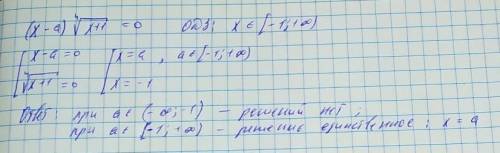 (x-a) ∜(x+1) = 0 ОДЗ: x ∈ [-1; +∞)
[x-a=0 [x=a, a ∈ [-1; +∞)
[∜(x+1) = 0 [x=-1
Ответ: при a ∈ (-∞; -1) — решений нет;
при a ∈ [-1; +∞) — решение единственное: x = a